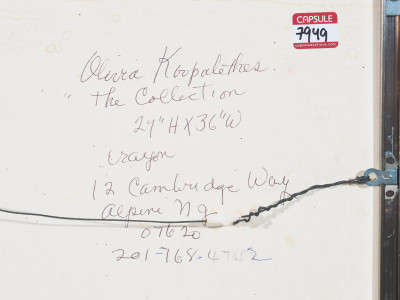 CAPSULE
7949
capsuleauctions.com
Olivia Koopalethes.
"The Collection
29"H X 36"W
Crayon
12 Cambridge Way
Alpine NJ
07620
201-768-4742